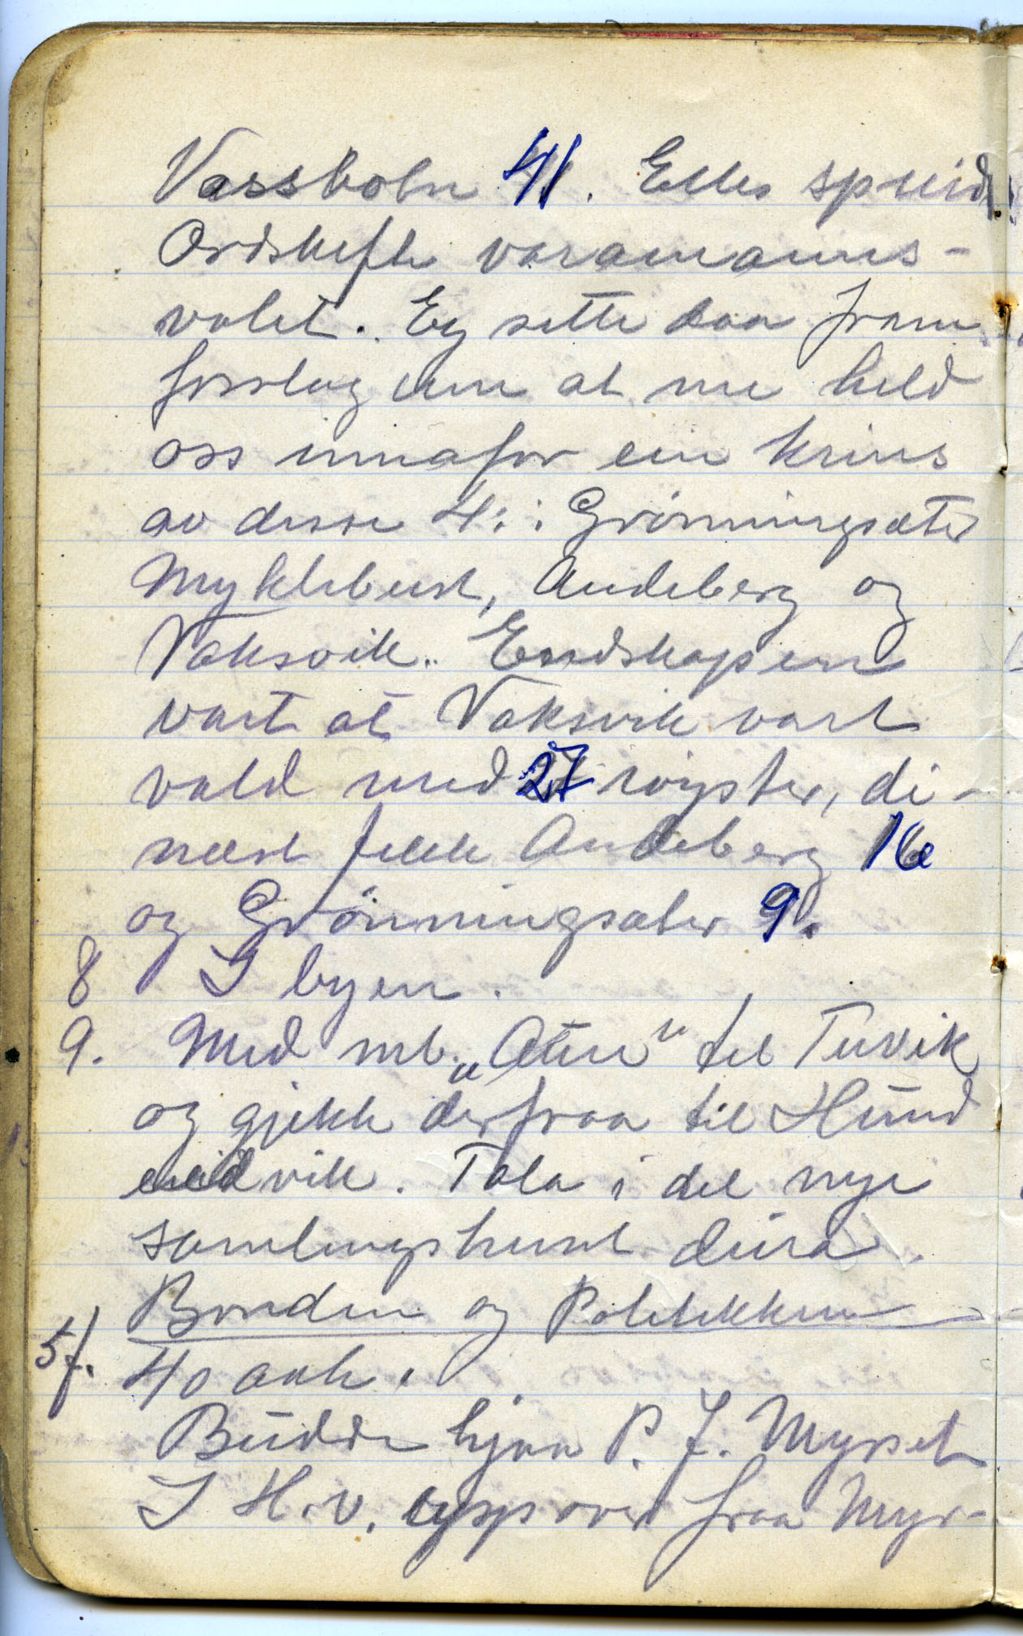 Vassbotn 41. Elles spreid
Ordskifte varamanns-
valet. Eg sette daa fram
forslag um at me held
oss innafor ein krins
av desse 4: Grönningsæter
Myklebust, Audeberg og
Vaksvik. Endskapen
vart at Vaksvik vart
vald med 27 röyster, di-
næst fekk Audeberg 16
og Grönningsæter 9.
8 I byen.
9. Med mb. „Atnn" til Tuvik
og gjekk derfraa til Hund
eidvik. Tala i det nye
samlingshuset deira.
Bonden og Politikken
5f. 40 aah.
Budde hjaa P. J. Myrset
I H.v. upp over fraa Myr-